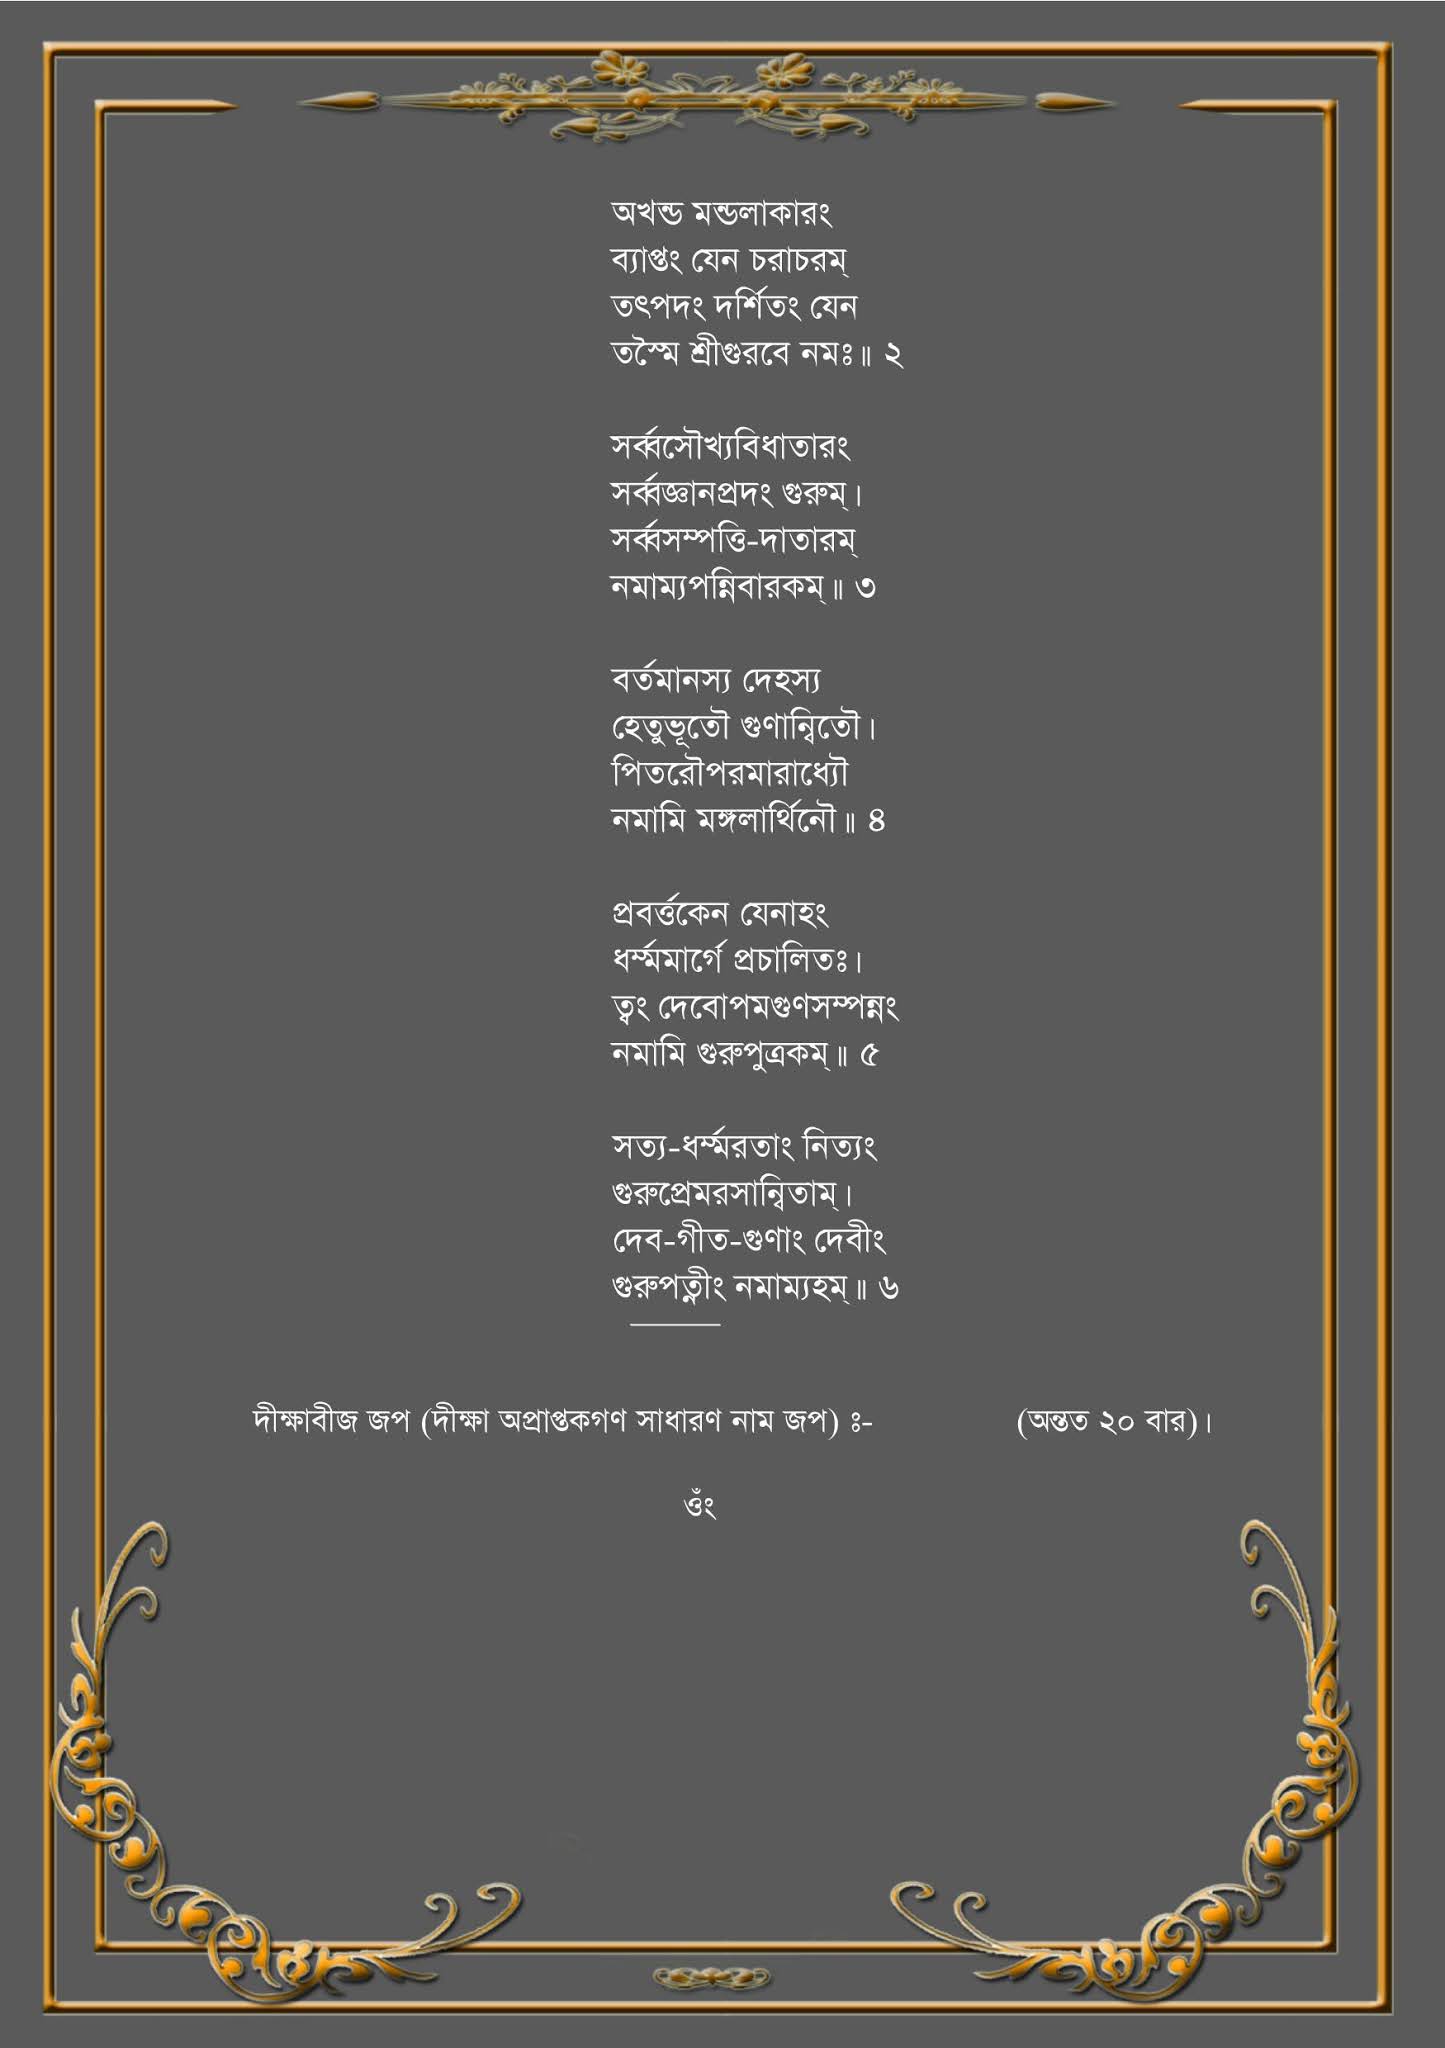 অখন্ড মন্ডলাকারং
ব্যাপ্তং যেন চরাচরম্
তৎপদং দর্শিতং যেন
তস্মৈ শ্রীগুরবে নমঃ॥ ২
সর্ব্বসৌখ্যবিধাতারং
সর্ব্বজ্ঞানপ্রদং গুরুম্।
সর্ব্বসম্পত্তি-দাতারম্
নমাম্যপন্নিবারকম্॥ ৩
বর্তমানস্য দেহস্য
হেতুভূতৌ গুণান্বিতৌ।
পিতরৌপরমারাধ্যৌ
নমামি মঙ্গলার্থিনৌ॥ ৪
প্রবর্ত্তকেন যেনাহং
ধর্ম্মমার্গে প্রচালিতঃ।
ত্বং দেবোপমগুণসম্পন্নং
নমামি গুরুপুত্রকম্॥ ৫
সত্য-ধর্ম্মরতাং নিত্যং
গুরুপ্রেমরসান্বিতাম্।
দেব-গীত-গুণাং দেবীং
গুরুপত্নীং নমাম্যহম্॥ ৬
দীক্ষাবীজ জপ (দীক্ষা অপ্রাপ্তকগণ সাধারণ নাম জপ) ঃ- (অন্তত ২০ বার)।
ওঁং